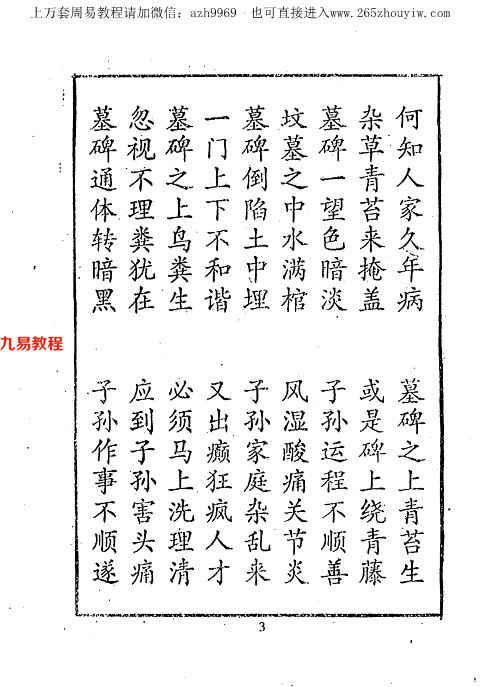 上万套周易教程请加微信：azh9969 也可直接进入www.265zhouyiw.com
何知人家久年病 墓碑之上青苔生
杂草青苔来掩盖 或是碑上绕青藤
墓碑一望色暗淡 子孙运程不顺善
坟墓之中水满棺 风湿酸痛关节炎
墓碑倒陷土中埋 子孙家庭杂乱来
一门上下不和谐 又出癫狂疯人才
墓碑之上鸟粪生 必须马上洗理清
忽视不理粪犹在 应到子孙害头痛
墓碑通体转暗黑 子孙作事不顺遂
九易教程
3